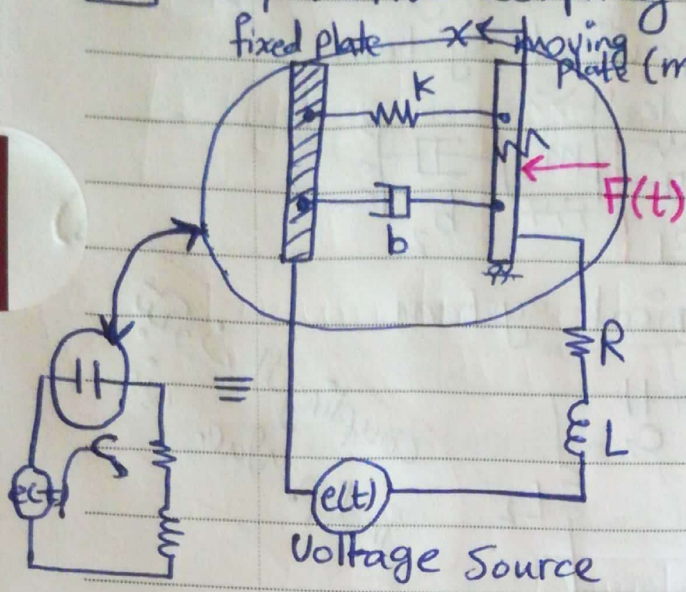 fixed plate x moving
plate (m
K
F(t)
b
R
L
e(t)
e(t)
Voltage Source